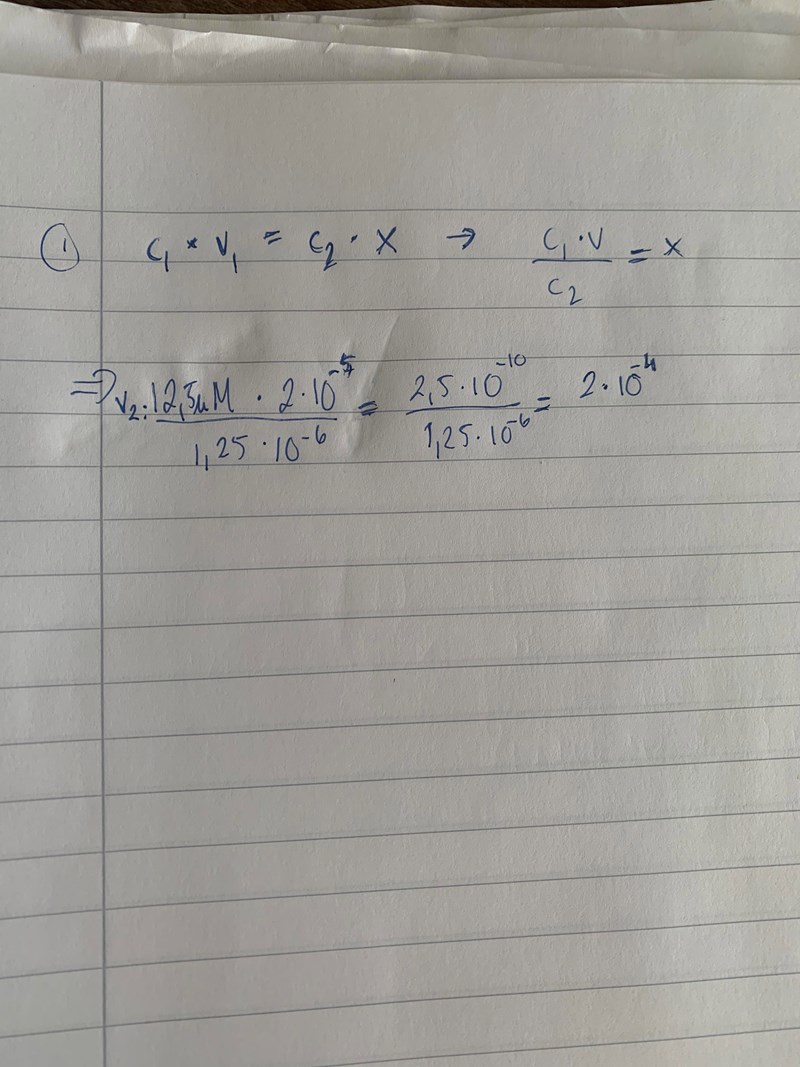 ① C₁ * V₁ = C₂ · X → C₁ · V / C₂ = X
⇒ V₂: 12,5uM · 2·10⁻⁵ / 1,25 · 10⁻⁶ = 2,5·10⁻¹⁰ / 1,25·10⁻⁶ = 2·10⁻⁴